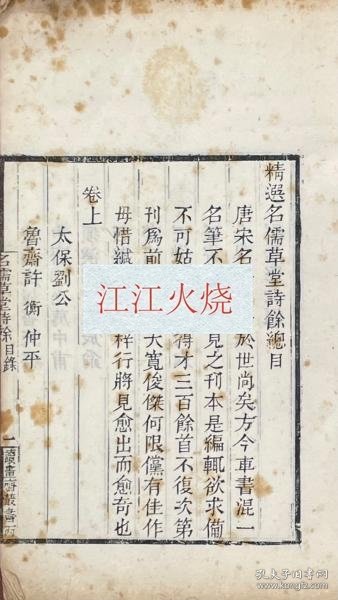 精選名儒草堂詩餘總目
唐宋名 於世尚矣方今車書混一
名筆不 見之刊本是編輒欲求備
不可姑 得才三百餘首不復次第
刊爲前 大寬俊傑何限儻有佳作
毋惜緘 梓行將見愈出而愈奇也
卷上
太保劉公
魯齋許 衡 仲平
名儒草堂詩餘目錄
一
讀畫齋叢書
江江火烧
孔夫子旧书网